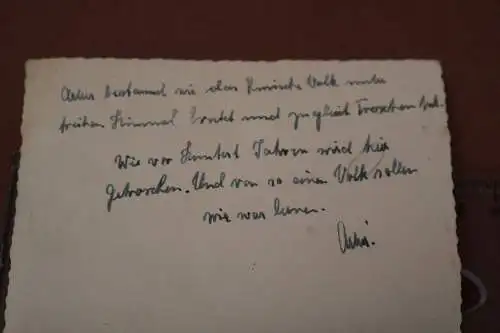 Arkus bestaunend wie das Kurische Volk unter
freien Himmel Erntet und zugleich Treschen tut.
Wie vor Hundert Jahren wird hier
getroschen. Und von so einen Volk sollen
wir was lernen.